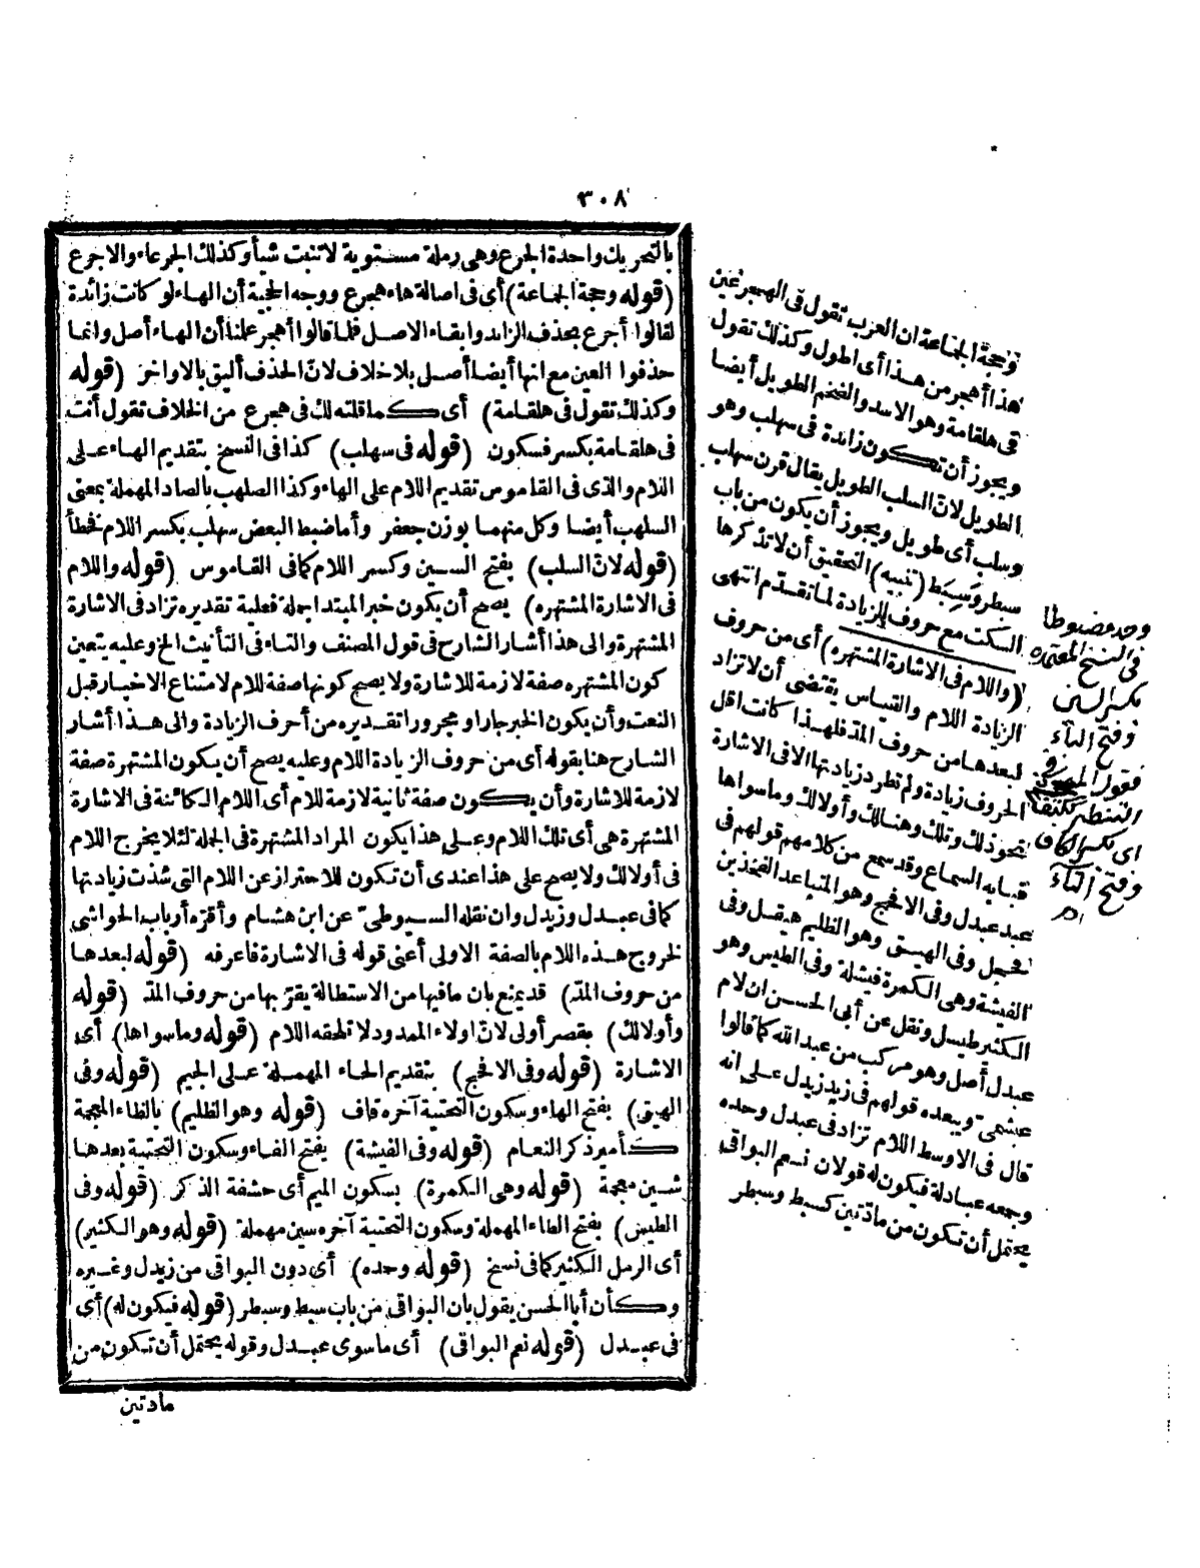 ٣٠٨
بالتحريك واحدة الجرع وهى رملة مستوية لا تنبت شيأ وكذلك الجرعاء والاجرع
(قوله وحجة الجماعة) أى فى اصالة هاء هجرع ووجه الحجية أن الهاء لو كانت زائدة
لقالوا أجرع بحذف الزائد وابقاء الاصل فلما قالوا أهجر علمنا أن الهاء أصل وانما
حذفوا العين مع انها أيضا أصل بلا خلاف لانّ الحذف أليق بالاواخر (قوله
وكذلك تقول فى هلقامة) أى كما قلته لك فى هجرع من الخلاف تقول أنت
فى هلقامة بكسر فسكون (قوله فى سهلب) كذا فى النسخ بتقديم الهاء على
اللام والذى فى القاموس تقديم اللام على الهاء وكذا الصلهب بالصاد المهملة بمعنى
السلهب أيضا وكل منهما بوزن جعفر وأما ضبط البعض سهلب بكسر اللام فخطأ
(قوله لانّ السلب) بفتح السين وكسر اللام كما فى القاموس (قوله واللام
فى الاشارة المشتهره) يصح أن يكون خبر المبتدا جملة فعلية تقديره تزاد فى الاشارة
المشتهرة والى هذا أشار الشارح فى قول المصنف والتاء فى التأنيث الخ وعليه يتعين
كون المشتهره صفة لازمة للاشارة ولا يصح كونها صفة للام لامتناع الاخبار قبل
النعت وأن يكون الخبر جارا ومجرورا تقديره من أحرف الزيادة والى هذا أشار
الشارح هنا بقوله أى من حروف الزيادة اللام وعليه يصح أن يكون المشتهرة صفة
لازمة للاشارة وأن يكون صفة ثانية لازمة للام أى اللام الكائنة فى الاشارة
المشتهرة هى أى تلك اللام وعلى هذا يكون المراد المشتهرة فى الجملة لئلا يخرج اللام
فى أولالك ولا يصح على هذا عندى أن تكون للاحتراز عن اللام التى شذت زيادتها
كما فى عبدل وزيدل وان نقله السيوطى عن ابن هشام وأقرّه أرباب الحواشى
لخروج هذه اللام بالصفة الاولى أعنى قوله فى الاشارة فاعرفه (قوله لبعدها
من حروف المدّ) قد يمنع بان مافيها من الاستطالة يقرّبها من حروف المدّ (قوله
وأولالك) بقصر أولى لانّ اولاء الممدود لا تلحقه اللام (قوله وماسواها) أى
الاشارة (قوله وفى الافحج) بتقديم الحاء المهملة على الجيم (قوله وفى
الهيق) بفتح الهاء وسكون التحتية آخره قاف (قوله وهو الظليم) بالظاء المعجمة
كأمير ذكر النعام (قوله وفى الفيشة) بفتح الفاء وسكون التحتية بعدها
شين معجمة (قوله وهى الكمرة) بسكون الميم أى حشفة الذكر (قوله وفى
الطيس) بفتح الطاء المهملة وسكون التحتية آخره سين مهملة (قوله وهو الكثير)
أى الرمل الكثير كما فى نسخ (قوله وحده) أى دون البواقى من زيدل وغيره
وكأن أبا الحسن يقول بان البواقى من باب سبط وسبطر (قوله فيكون له) أى
فى عبدل (قوله نعم البواقى) أى ماسوى عبدل وقوله يحتمل أن تكون من
مادتين
وحجة الجماعة ان العرب تقول فى الهجرع حين
هذا أهجر من هذا أى اطول وكذلك تقول
فى هلقامة وهو الاسد والضخم الطويل أيضا
ويجوز أن تكون زائدة فى سهلب وهو
الطويل لانّ السلب الطويل يقال قرن سهلب
وسلب أى طويل ويجوز أن يكون من باب
سبطر وسبط (تنبيه) التحقيق أن لا تذكر ها
السكت مع حروف الزيادة لما تقدّم انتهى
(واللام فى الاشارة المشتهره) أى من حروف
الزيادة اللام والقياس يقتضى أن لا تزاد
لبعدها من حروف المدّ فلهذا كانت اقل
الحروف زيادة ولم تطرد زيادتها الا فى الاشارة
نحو ذلك وتلك وهنالك وأولالك وماسواها
فبابه السماع وقد سمع من كلامهم قولهم فى
عبد عبدل وفى الافحج وهو المتباعد الفخذين
فحجل وفى الهيق وهو الظليم هيقل وفى
الفيشة وهى الكمرة فيشلة وفى الطيس وهو
الكثير طيسل ونقل عن أبى الحسن ان لام
عبدل أصل وهو مركب من عبد الله كما قالوا
عبشمى ويبعده قولهم فى زيد زيدل على انه
قال فى الاوسط اللام تزاد فى عبدل وحده
وجمعه عبادلة فيكون له قولان نعم البواقى
يحتمل أن تكون من مادّتين كسبط وسبطر
وجد مضبوطا
فى النسخ المعتمده
بكسر السين
وفتح الباء
فقول
اى بكسر الكاف
وفتح التاء